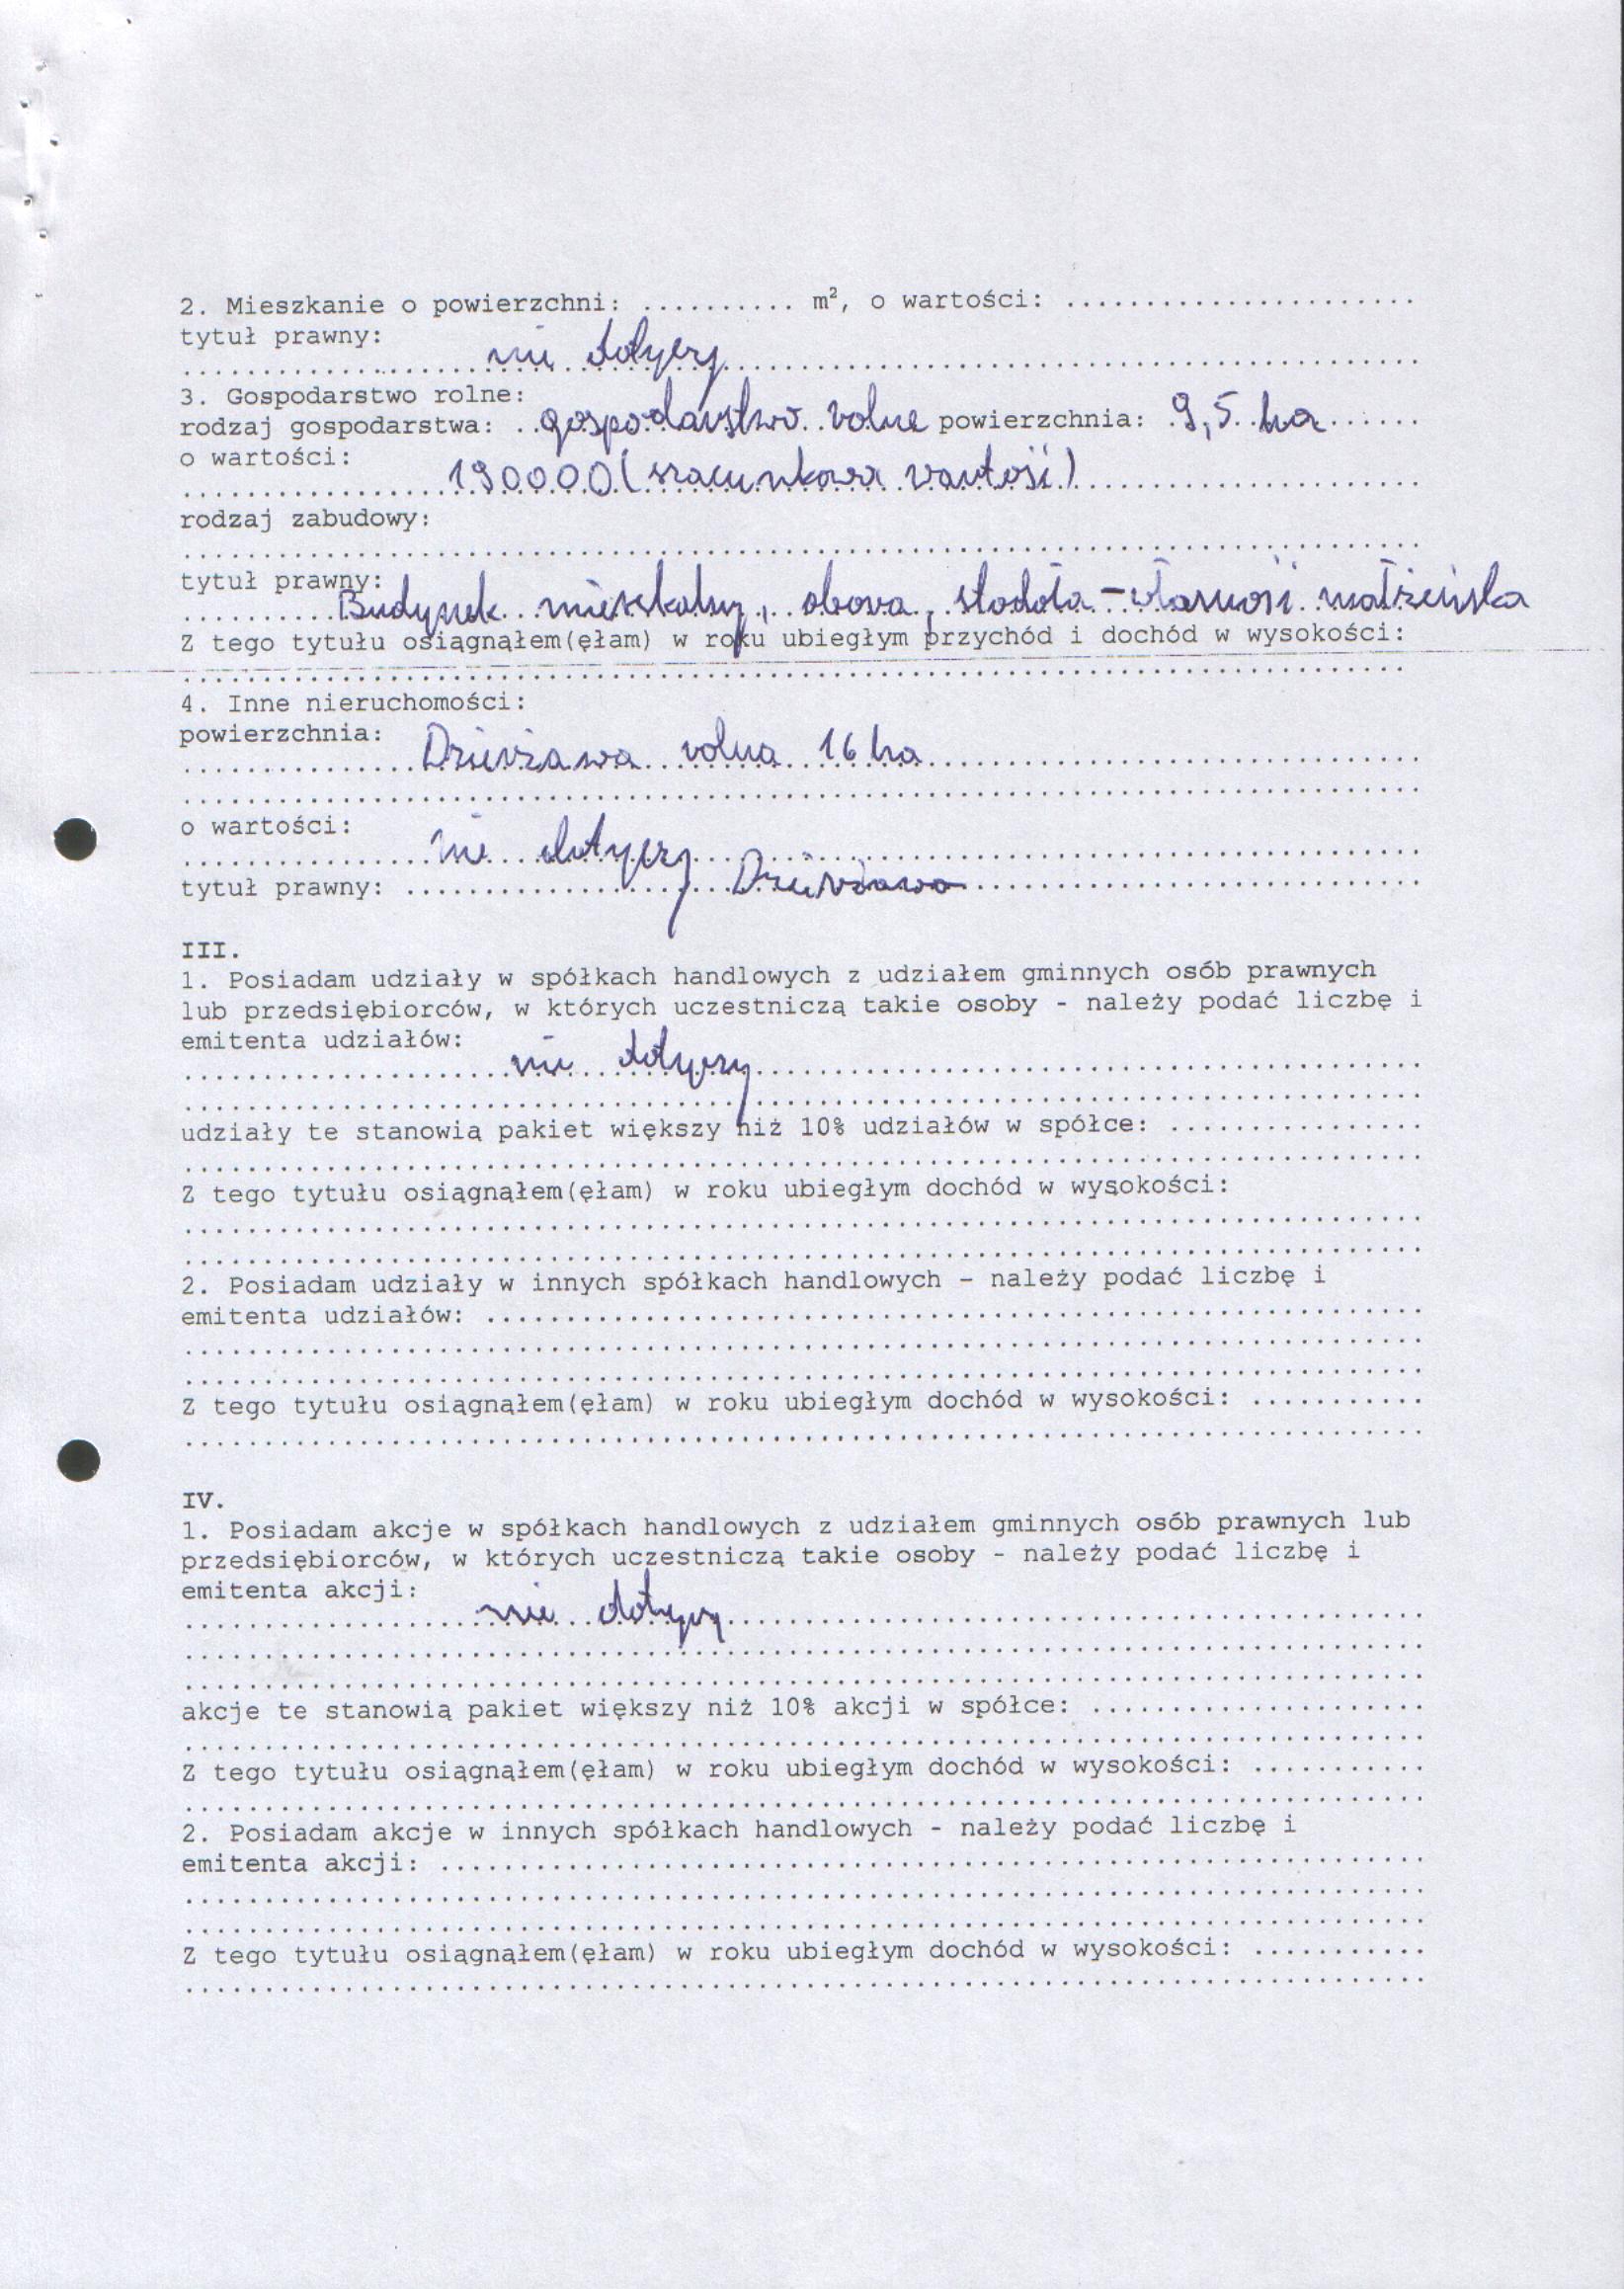 2. Mieszkanie o powierzchni: ........... m², o wartości: ......................
tytuł prawny:
nie dotyczy
3. Gospodarstwo rolne:
rodzaj gospodarstwa: gospodarstwo rolne powierzchnia: 9,5 ha
o wartości:
190000 (szacunkowa wartość)
rodzaj zabudowy:
tytuł prawny:
Budynek mieszkalny, obora, stodoła – własność małżeńska
Z tego tytułu osiągnąłem(ęłam) w roku ubiegłym przychód i dochód w wysokości:
4. Inne nieruchomości:
powierzchnia:
Dzierżawa rolna 16 ha
o wartości:
nie dotyczy
tytuł prawny: Dzierżawa
III.
1. Posiadam udziały w spółkach handlowych z udziałem gminnych osób prawnych
lub przedsiębiorców, w których uczestniczą takie osoby - należy podać liczbę i
emitenta udziałów:
nie dotyczy
udziały te stanowią pakiet większy niż 10% udziałów w spółce: ................
Z tego tytułu osiągnąłem(ęłam) w roku ubiegłym dochód w wysokości:
2. Posiadam udziały w innych spółkach handlowych – należy podać liczbę i
emitenta udziałów:
Z tego tytułu osiągnąłem(ęłam) w roku ubiegłym dochód w wysokości: ...........
IV.
1. Posiadam akcje w spółkach handlowych z udziałem gminnych osób prawnych lub
przedsiębiorców, w których uczestniczą takie osoby - należy podać liczbę i
emitenta akcji:
nie dotyczy
akcje te stanowią pakiet większy niż 10% akcji w spółce: .....................
Z tego tytułu osiągnąłem(ęłam) w roku ubiegłym dochód w wysokości: ...........
2. Posiadam akcje w innych spółkach handlowych - należy podać liczbę i
emitenta akcji:
Z tego tytułu osiągnąłem(ęłam) w roku ubiegłym dochód w wysokości: ...........